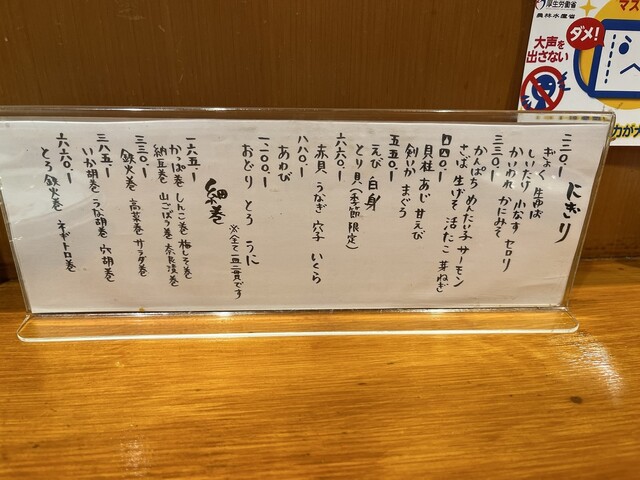 にぎり
二二〇.ー
ぎょく 生ゆば
しいたけ 小なす セロリ
かいわれ かにみそ
三三〇.ー
かんぱち めんたい子 サーモン
さば 生げそ 活たこ 芽ねぎ
四四〇.ー
貝柱 あじ 甘えび
剣いか まぐろ
五五〇.ー
えび 白身
とり貝(季節限定)
六六〇.ー
赤貝 うなぎ 穴子 いくら
八八〇.ー
あわび
一、二〇〇.ー
おどり とろ うに
※全て一皿二貫です
細巻
一六五.ー
かっぱ巻 しんこ巻 梅しそ巻
納豆巻 山ごぼう巻 奈良漬巻
三三〇.ー
鉄火巻 高菜巻 サラダ巻
三八五.ー
いか胡巻 うな胡巻 穴胡巻
六六〇.ー
とろ鉄火巻 ネギトロ巻
厚生労働省
農林水産省
大声を
出さない
ダメ!
マス